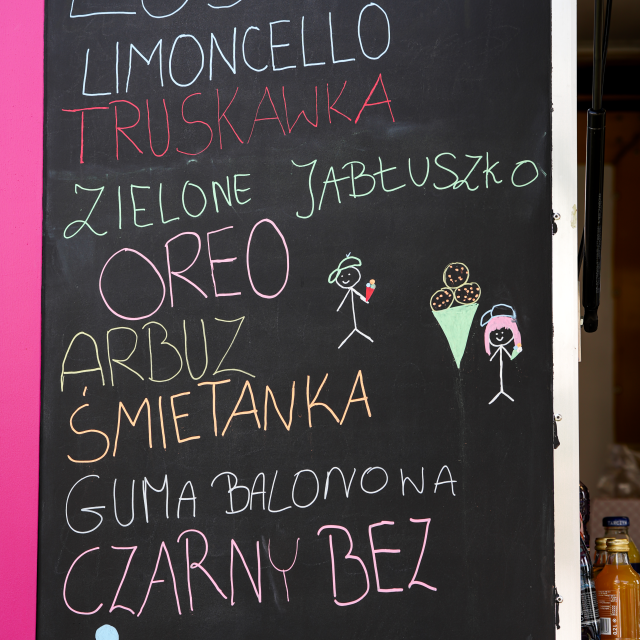 LIMONCELLO
TRUSKAWKA
ZIELONE JABŁUSZKO
OREO
ARBUZ
ŚMIETANKA
GUMA BALONOWA
CZARNY BEZ